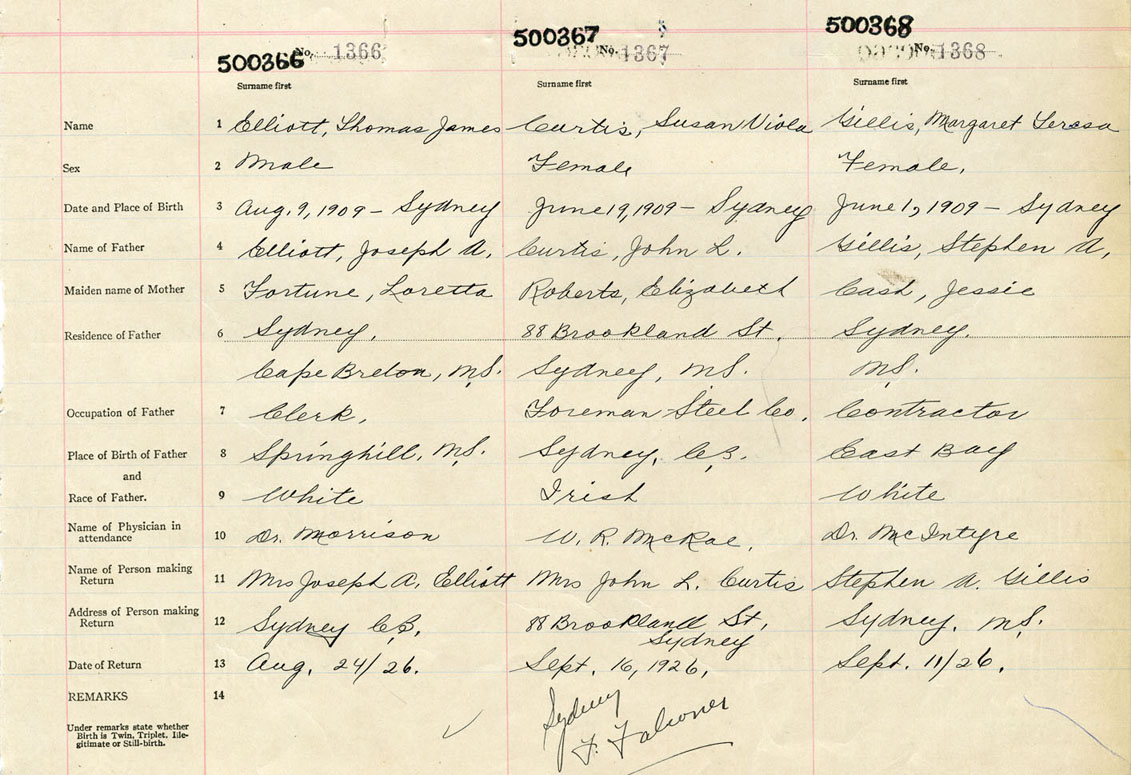 500366 No. 1366 500367 No. 1367 500368 No. 1368
Surname first Surname first Surname first
Name 1 Elliott, Thomas James Curtis, Susan Viola Gillis, Margaret Teresa
Sex 2 Male Female Female,
Date and Place of Birth 3 Aug. 9, 1909 - Sydney June 19, 1909 - Sydney June 1, 1909 - Sydney
Name of Father 4 Elliott, Joseph A. Curtis, John L. Gillis, Stephen A,
Maiden name of Mother 5 Fortune, Loretta Roberts, Elizabeth Cash, Jessie
Residence of Father 6 Sydney, 88 Brookland St, Sydney.
Cape Breton, N.S. Sydney, N.S. N.S.
Occupation of Father 7 Clerk, Foreman Steel Co, Contractor
Place of Birth of Father 8 Springhill, N.S. Sydney, C.B. East Bay
and
Race of Father. 9 White Irish White
Name of Physician in
attendance 10 Dr. Morrison W. R. McRae, Dr. McIntyre
Name of Person making
Return 11 Mrs Joseph A. Elliott Mrs John L. Curtis Stephen A. Gillis
Address of Person making
Return 12 Sydney C.B. 88 Brookland St, Sydney, N.S.
Sydney
Date of Return 13 Aug. 24/26. Sept. 16, 1926, Sept. 11/26.
REMARKS 14
Sydney
F. Falconer
Under remarks state whether
Birth is Twin, Triplet, Ille-
gitimate or Still-birth.